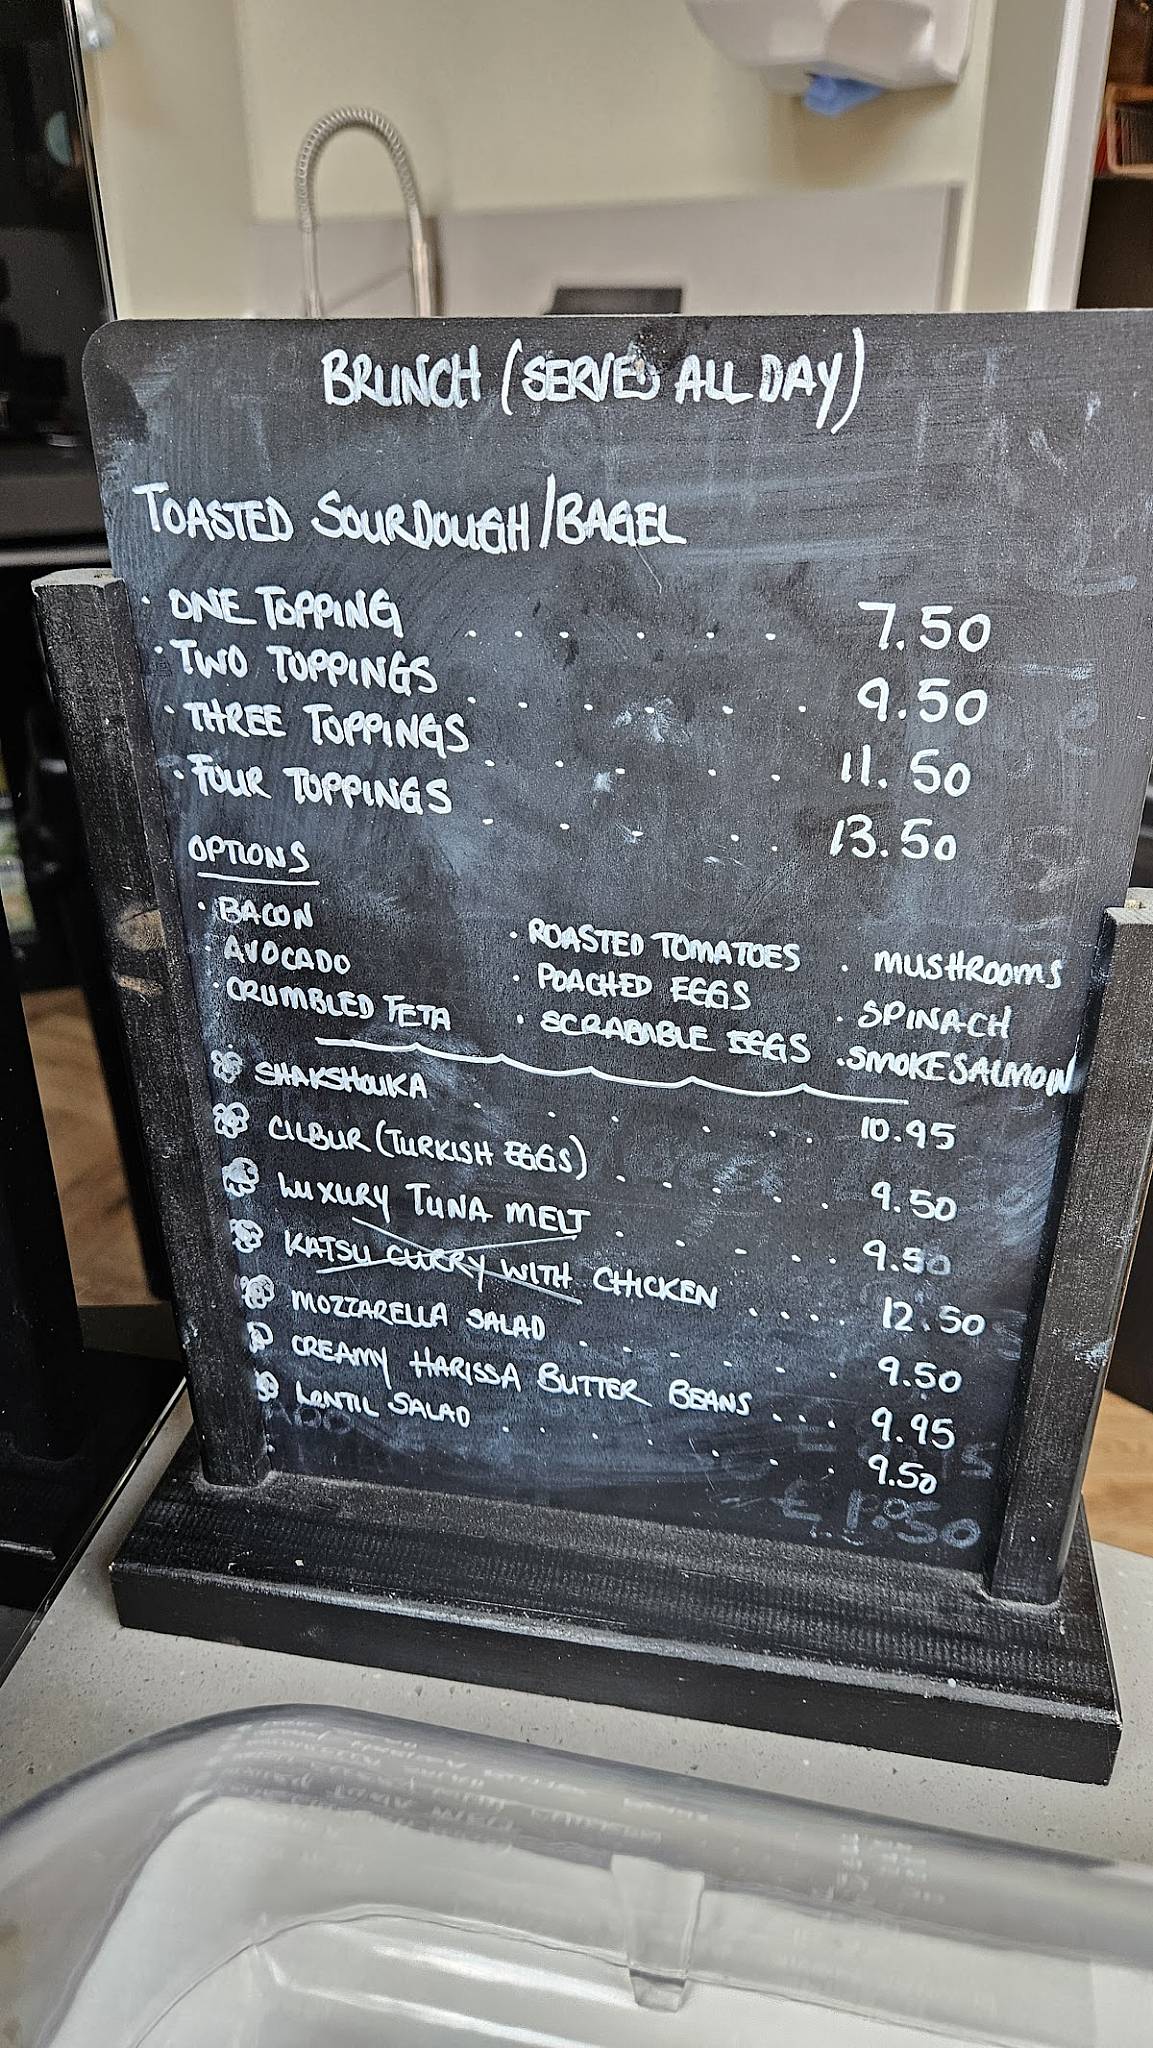 BRUNCH (SERVED ALL DAY)
TOASTED SOURDOUGH/BAGEL
· ONE TOPPING . . . . . . 7.50
· TWO TOPPINGS . . . . . . . 9.50
· THREE TOPPINGS . . . . . 11.50
· FOUR TOPPINGS . . . . . 13.50
OPTIONS
· BACON · ROASTED TOMATOES · MUSHROOMS
· AVOCADO · POACHED EGGS · SPINACH
· CRUMBLED FETA · SCRABABLE EGGS · SMOKESALMON
SHAKSHOUKA . . . . . . . 10.95
CILBUR (TURKISH EGGS) . . . . . . 9.50
LUXURY TUNA MELT . . . . . 9.50
KATSU CURRY WITH CHICKEN . . . . . 12.50
MOZZARELLA SALAD . . . . . . 9.50
CREAMY HARISSA BUTTER BEANS . . . . 9.95
LENTIL SALAD . . . . . . . 9.50